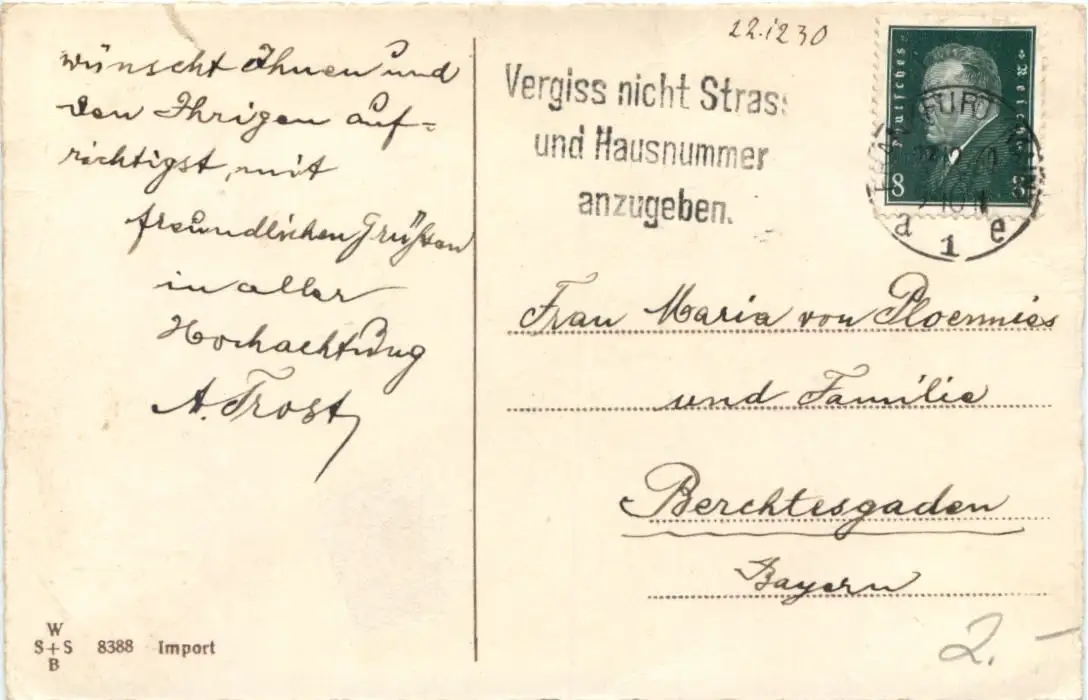 wünscht Ihnen und
den Ihrigen auf=
richtigst, mit
freundlichen Grüßen
in aller
Hochachtung
A. Trost
W
S+S 8388 Import
B
22.12 30
Vergiss nicht Strass
und Hausnummer
anzugeben.
Deutsches Reich
8 8
a 1 e
Frau Maria von Ploennies
und Familie
Berchtesgaden
Bayern
2.-